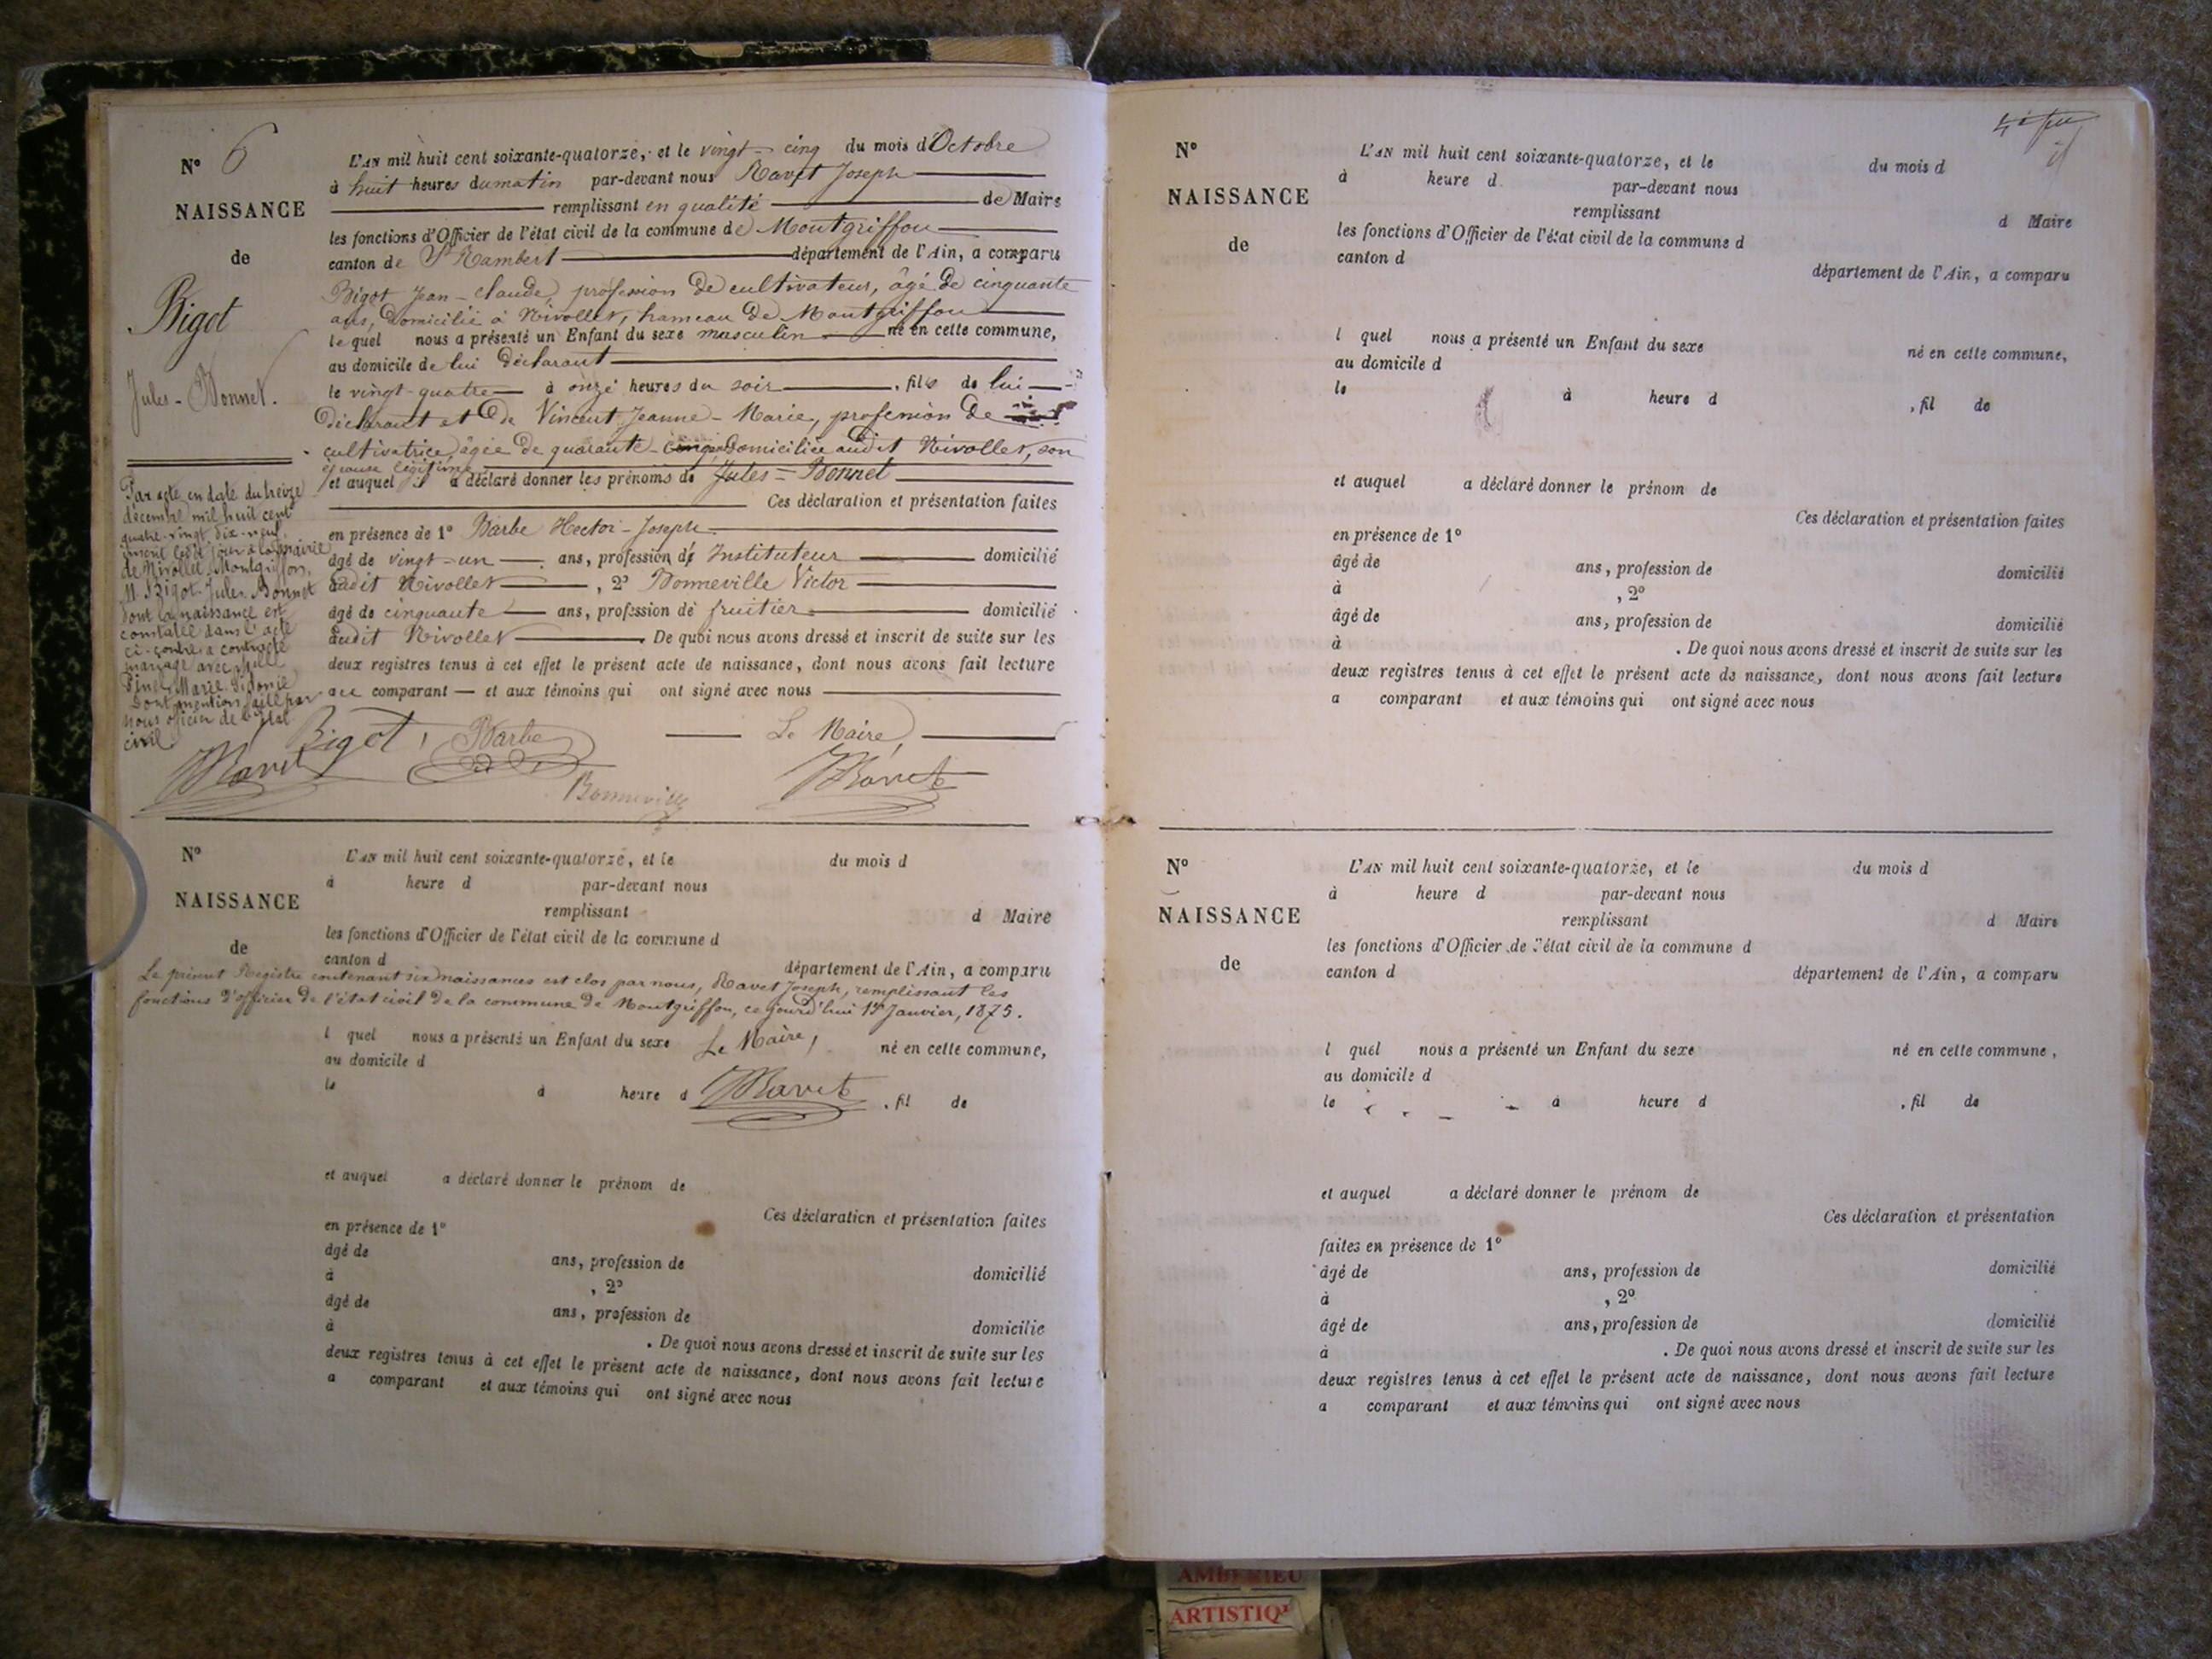 N° 6
NAISSANCE
de
Bigot
Jules-Bonnet.
Par acte en date du treize
décembre mil huit cent
quatre-vingt dix-neuf
inscrit le dit jour à la mairie
de Nivollet Montgriffon,
M. Bigot Jules Bonnet
dont la naissance est
constatée dans l'acte
ci-contre a contracté
mariage avec Melle
Pinel Marie Sidonie
Dont mention faite par
nous officier de l'état
civil
Ravet
L'AN mil huit cent soixante-quatorze, et le vingt-cinq du mois d'Octobre
à huit heures du matin par-devant nous Ravet Joseph
remplissant en qualité de Maire
les fonctions d'Officier de l'état civil de la commune de Montgriffon
canton de St Rambert département de l'Ain, a comparu
Bigot Jean-Claude, profession de cultivateur, âgé de cinquante
ans, domicilié à Nivollet, hameau de Montgriffon
lequel nous a présenté un Enfant du sexe masculin né en cette commune,
au domicile de lui déclarant
le vingt-quatre à onze heures du soir, fils de lui
déclarant et de Vincent Jeanne-Marie, profession de
cultivatrice, âgée de quarante-cinq domiciliée audit Nivollet, son
épouse légitime
et auquel il a déclaré donner les prénoms de Jules=Bonnet
Ces déclaration et présentation faites
en présence de 1° Barbe Hector-Joseph
âgé de vingt-un ans, profession d' Instituteur domicilié
audit Nivollet, 2° Bonneville Victor
âgé de cinquante ans, profession de fruitier domicilié
audit Nivollet. De quoi nous avons dressé et inscrit de suite sur les
deux registres tenus à cet effet le présent acte de naissance, dont nous avons fait lecture
au comparant et aux témoins qui ont signé avec nous
Bigot, Barbe Le Maire,
Bonneville Ravet
N°
NAISSANCE
de
L'AN mil huit cent soixante-quatorze, et le du mois d
à heure d par-devant nous
remplissant d Maire
les fonctions d'Officier de l'état civil de la commune d
canton d département de l'Ain, a comparu
Le présent Registre contenant six naissances est clos par nous, Ravet Joseph, remplissant les
fonctions d'officier de l'état civil de la commune de Montgriffon, ce jourd'hui 1er Janvier, 1875.
l quel nous a présenté un Enfant du sexe Le Maire, né en cette commune,
au domicile d
le à heure d Ravet , fil de
et auquel a déclaré donner le prénom de
Ces déclaration et présentation faites
en présence de 1°
âgé de ans, profession de domicilié
à , 2°
âgé de ans, profession de domicilié
à . De quoi nous avons dressé et inscrit de suite sur les
deux registres tenus à cet effet le présent acte de naissance, dont nous avons fait lecture
a comparant et aux témoins qui ont signé avec nous
N°
NAISSANCE
de
L'AN mil huit cent soixante-quatorze, et le du mois d
à heure d par-devant nous
remplissant d Maire
les fonctions d'Officier de l'état civil de la commune d
canton d département de l'Ain, a comparu
l quel nous a présenté un Enfant du sexe né en cette commune,
au domicile d
le à heure d , fil de
et auquel a déclaré donner le prénom de
Ces déclaration et présentation faites
en présence de 1°
âgé de ans, profession de domicilié
à , 2°
âgé de ans, profession de domicilié
à . De quoi nous avons dressé et inscrit de suite sur les
deux registres tenus à cet effet le présent acte de naissance, dont nous avons fait lecture
a comparant et aux témoins qui ont signé avec nous
N°
NAISSANCE
de
L'AN mil huit cent soixante-quatorze, et le du mois d
à heure d par-devant nous
remplissant d Maire
les fonctions d'Officier de l'état civil de la commune d
canton d département de l'Ain, a comparu
l quel nous a présenté un Enfant du sexe né en cette commune,
au domicile d
le à heure d , fil de
et auquel a déclaré donner le prénom de
Ces déclaration et présentation
faites en présence de 1°
âgé de ans, profession de domicilié
à , 2°
âgé de ans, profession de domicilié
à . De quoi nous avons dressé et inscrit de suite sur les
deux registres tenus à cet effet le présent acte de naissance, dont nous avons fait lecture
a comparant et aux témoins qui ont signé avec nous
AMBERIEU
ARTISTIQ